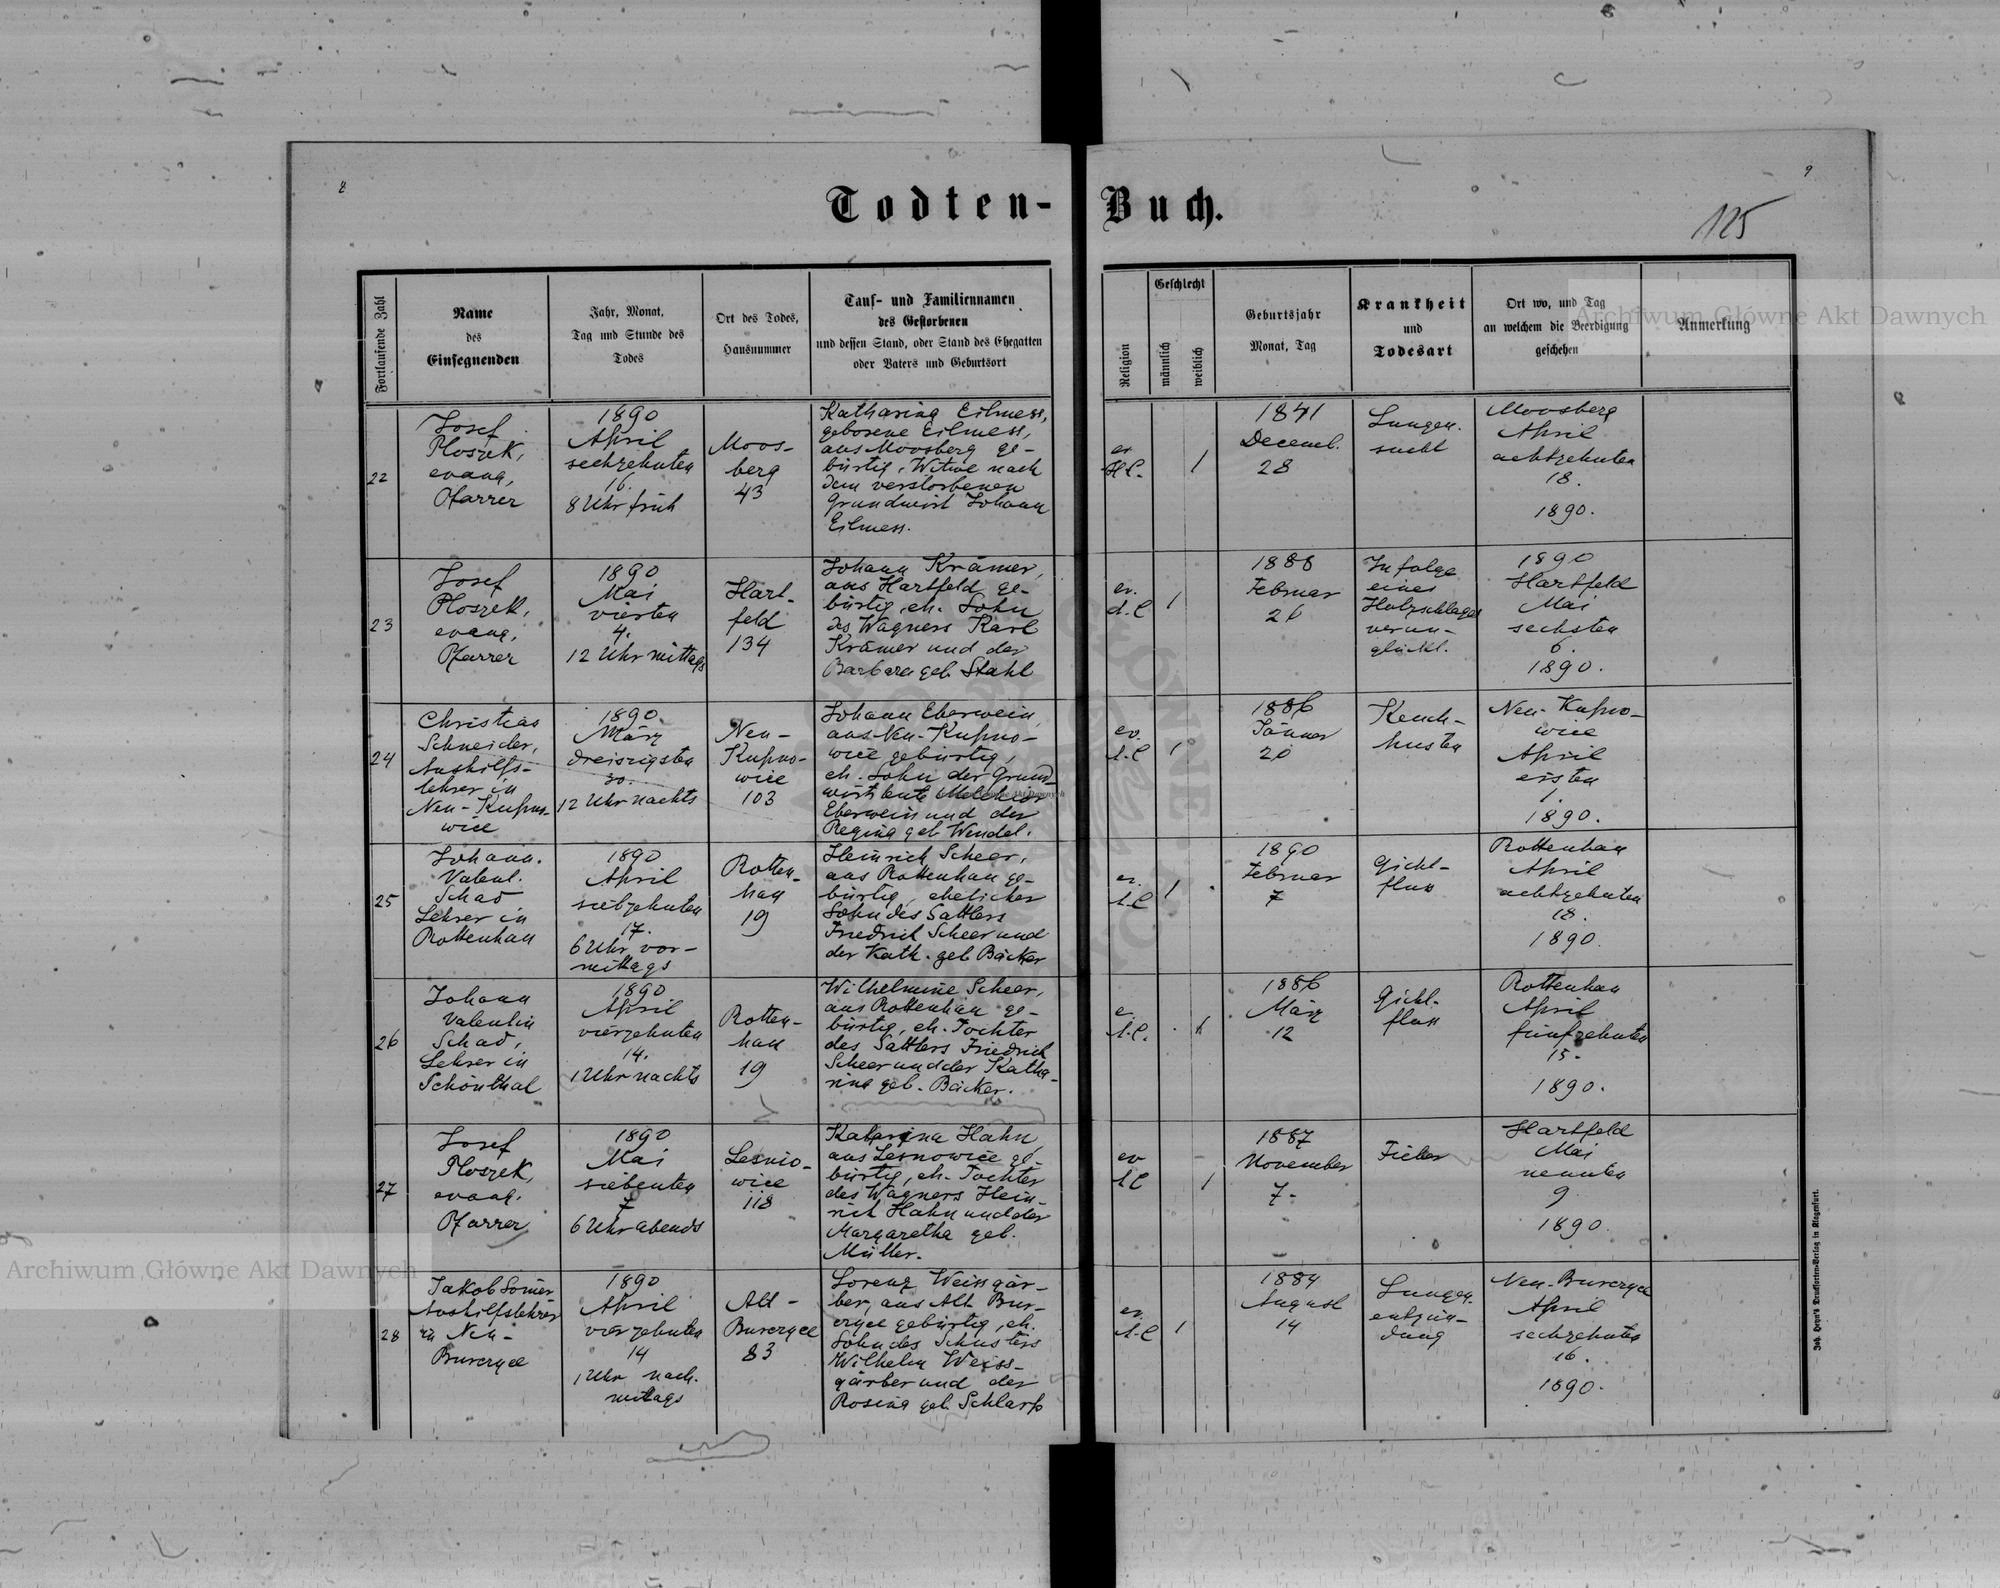 8
9
Todten-Buch.
125
Fortlaufende Zahl
Name
des
Einsegnenden
Jahr, Monat,
Tag und Stunde des
Todes
Ort des Todes,
Hausnummer
Tauf- und Familiennamen
des Gestorbenen
und dessen Stand, oder Stand des Ehegatten
oder Vaters und Geburtsort
Religion
Geschlecht
männlich
weiblich
Geburtsjahr
Monat, Tag
Krankheit
und
Todesart
Ort wo, und Tag
an welchem die Beerdigung
geschehen
Anmerkung
Archiwum Główne Akt Dawnych
22
Josef
Ploszek,
evang,
Pfarrer
1890
April
sechzehnten
16.
8 Uhr früh
Moos-
berg
43
Katharina Eilmess,
geborene Eilmess,
aus Moosberg ge-
bürtig, Witwe nach
dem verstorbenen
Grundwirt Johann
Eilmess.
ev.
H.C.
1
1841
Decemb.
28
Lungen-
sucht
Moosberg
April
achtzehnten
18.
1890.
23
Josef
Ploszek,
evang,
Pfarrer
1890
Mai
vierten
4.
12 Uhr mittags
Hart-
feld
134
Johann Krämer,
aus Hartfeld ge-
bürtig, eh. Sohn
des Wagners Karl
Krämer und der
Barbara geb. Stahl
ev.
A.C
1
1888
Februar
26
Infolge
eines
Holzschlages
verun-
glückt.
1890
Hartfeld
Mai
sechsten
6.
1890.
24
Christias
Schneider,
Aushilfs-
lehrer in
Neu-Kupno-
wice
1890
März
dreiszigsten
30.
12 Uhr nachts
Neu-
Kupno-
wice
103
Johann Eberwein,
aus Neu-Kupno-
wice gebürtig,
eh. Sohn der Grund-
wirtsleute Melchior
Eberwein und der
Regina geb Wendel.
ev.
A.C
1
1886
Jänner
20
Keuch-
husten
Neu-Kupno-
wice
April
ersten
1.
1890.
25
Johann.
Valent.
Schad
Lehrer in
Rottenhan
1890
April
siebzehnten
17.
6 Uhr vor-
mittags
Rotten-
han
19
Heinrich Scheer,
aus Rottenhan ge-
bürtig, ehelicher
Sohn des Sattlers
Friedrich Scheer und
der Kath. geb Bäcker
ev.
A.C
1
1890
Februar
7
Gicht-
fluss
Rottenhan
April
achtzehnten
18.
1890.
26
Johann
Valentin
Schad,
Lehrer in
Schönthal
1890
April
vierzehnten
14.
1 Uhr nachts
Rotten-
han
19
Wilhelmine Scheer,
aus Rottenhan ge-
bürtig, eh. Tochter
des Sattlers Friedrich
Scheer und der Katha-
rina geb. Bäcker.
e.
A.C.
1
1886
März
12
Gicht-
fluss
Rottenhan
April
fünfzehnten
15.
1890.
27
Josef
Ploszek,
evang.
Pfarrer
1890
Mai
siebenten
7
6 Uhr abends
Lesnio-
wice
118
Katarina Hahn,
aus Lesnowice ge-
bürtig, eh. Tochter
des Wagners Hein-
rich Hahn und der
Margaretha geb.
Müller.
ev
A.C
1
1887
November
7.
Fieber
Hartfeld
Mai
neunten
9
1890.
28
Jakob Somer
Aushilfslehrer
in Neu-
Burczyce
1890
April
vierzehnten
14
1 Uhr nach-
mittags
Alt-
Burczyce
83
Lorenz Weissgär-
ber, aus Alt Bur-
czyce gebürtig, eh.
Sohn des Schusters
Wilhelm Weiss-
gärber und der
Rosina geb. Schlarp
ev.
A.C
1
1884
August
14
Lungen-
entzün-
dung
Neu-Burczyce
April
sechzehnten
16.
1890.
Joh. Heyn's Drucksorten-Verlag in Klagenfurt.
Archiwum Główne Akt Dawnych